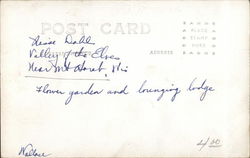 POST CARD
Nissi Dahle
Valley of the Elves
Near Mt Horeb, Wis
ADDRESS
PLACE
STAMP
HERE
Flower garden and lounging lodge
4 00
Wallace